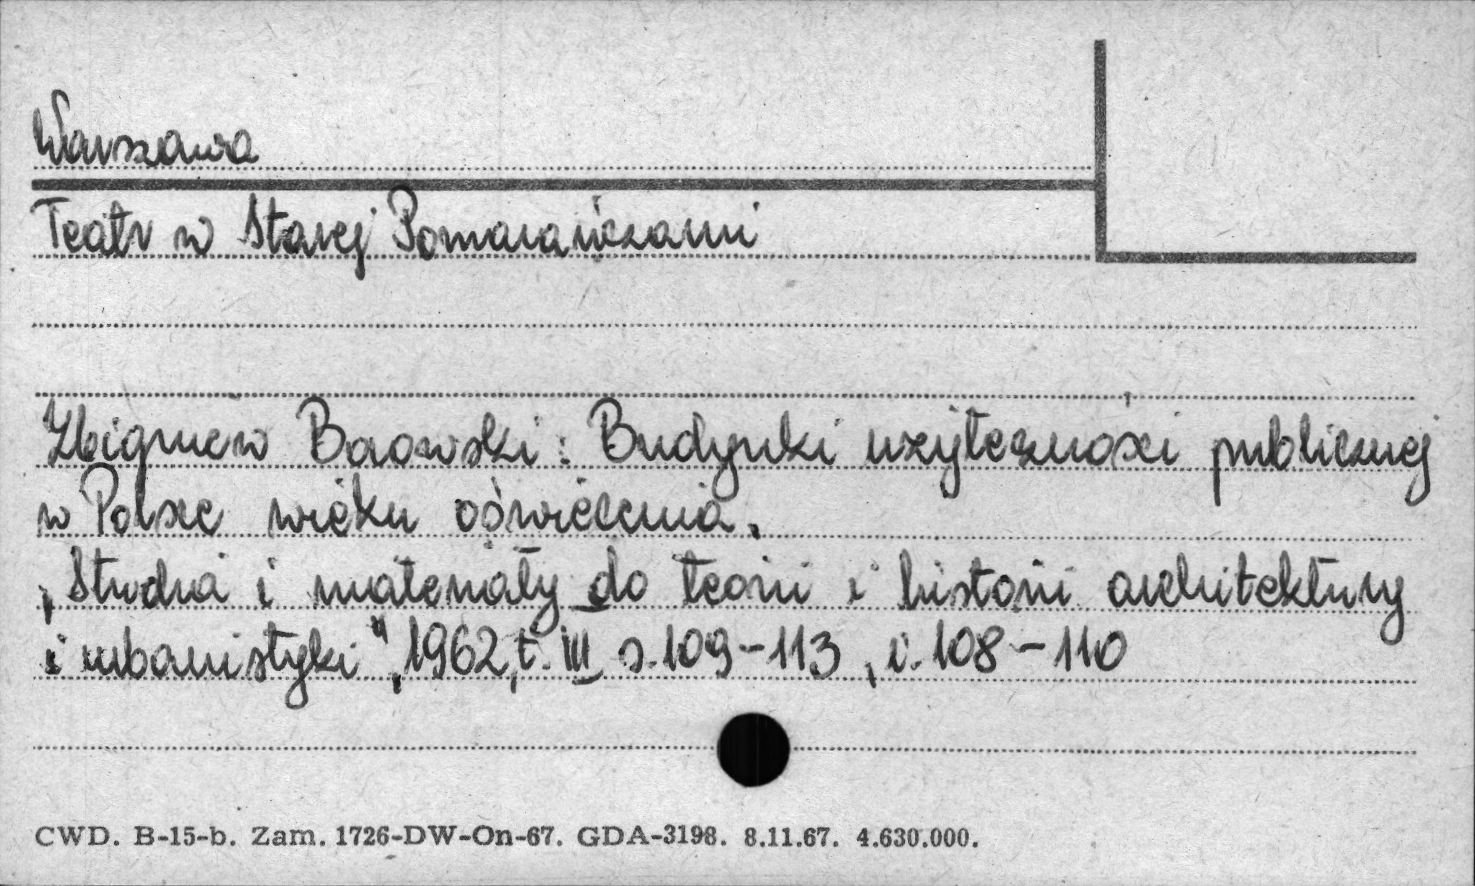 Warszawa
Teatr w Starej Pomarańczarni
Zbigniew Baowski: Budynki użyteczności publicznej
w Polsce wieku oświecenia.
„Studia i materiały do teorii i historii architektury
i urbanistyki", 1962, t. III s. 109-113, i. 108-110
CWD. B-15-b. Zam. 1726-DW-On-67. GDA-3198. 8.11.67. 4.630.000.